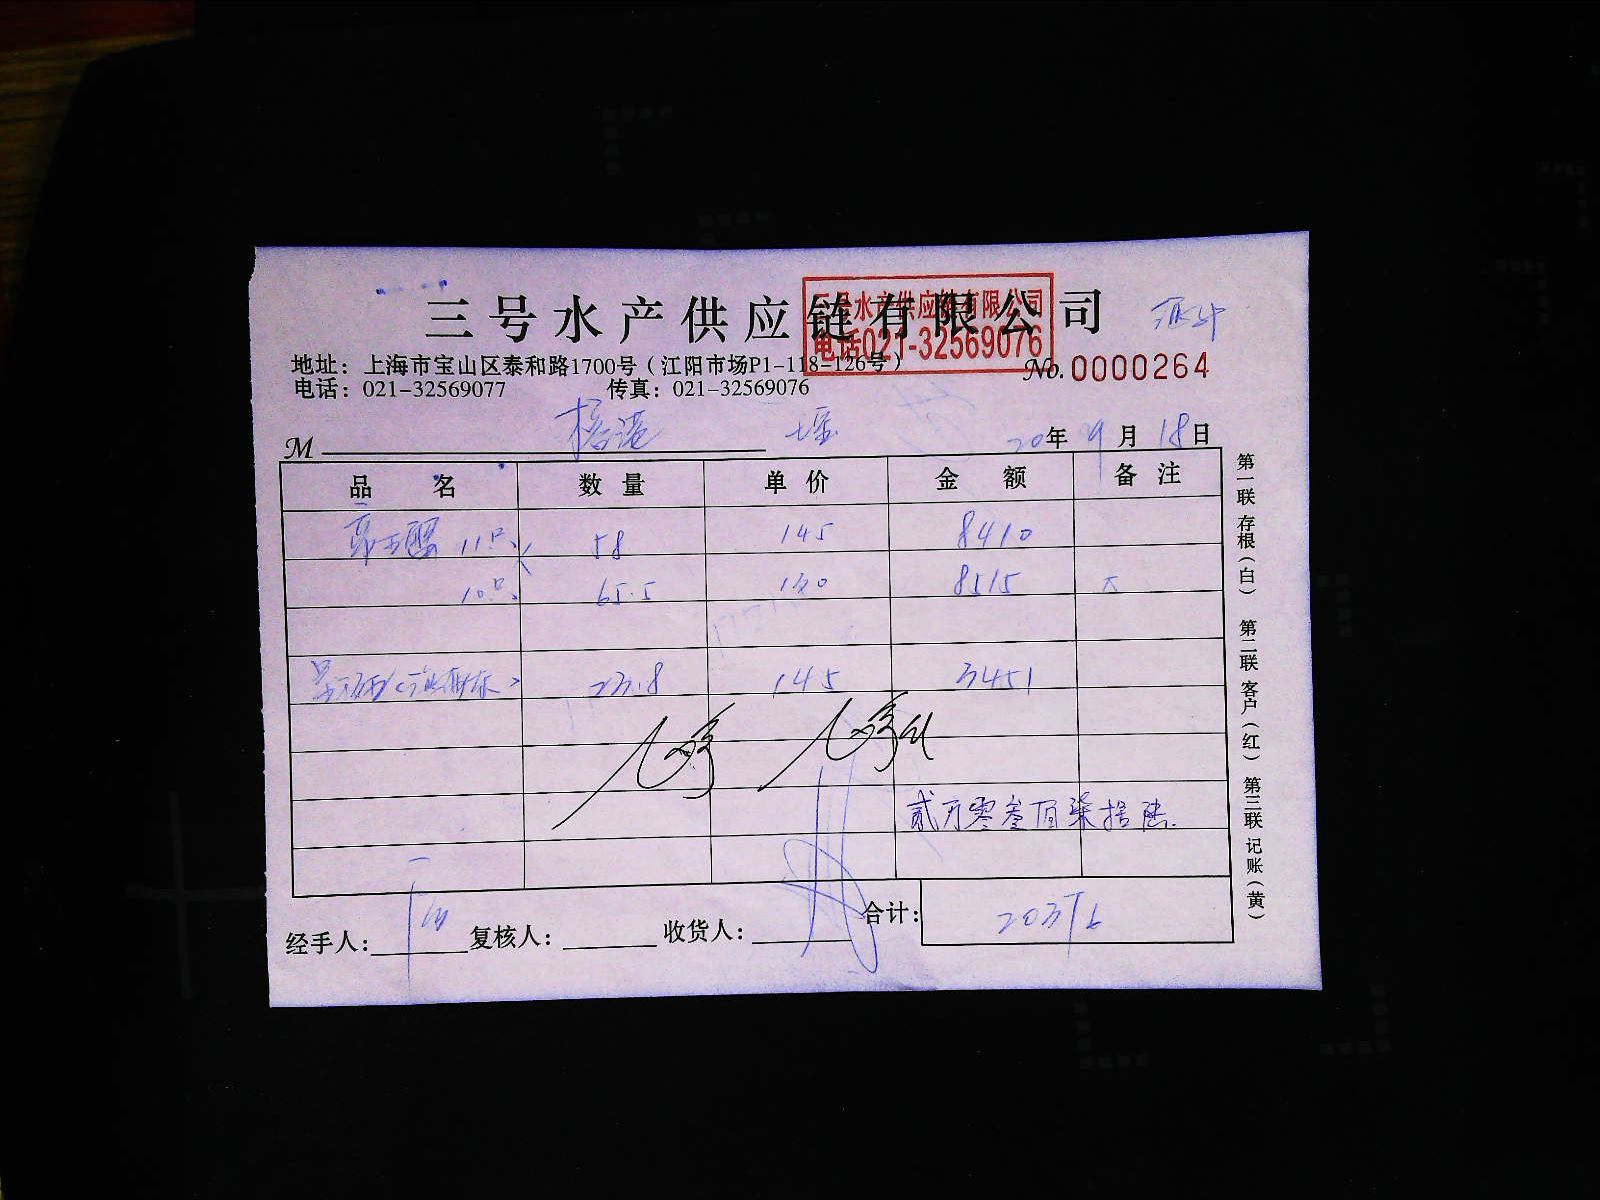 三号水产供应链有限公司
三号水产供应链有限公司
电话021-32569076
地址：上海市宝山区泰和路1700号（江阳市场P1-118-126号）
No.0000264
电话：021-32569077 传真：021-32569076
M 20年9月18日
品名 数量 单价 金额 备注
11只 58 145 8410
10只 65.5 130 8515
23.8 145 3451
贰万零叁佰柒拾陆
经手人： 复核人： 收货人： 合计：20376
第一联 存根（白） 第二联 客户（红） 第三联 记账（黄）